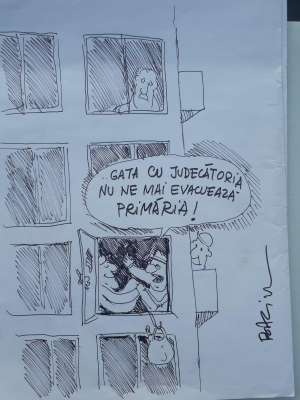 ..GATA CU JUDECĂTORIA
NU NE MAI EVACUEAZĂ
PRIMĂRIA!